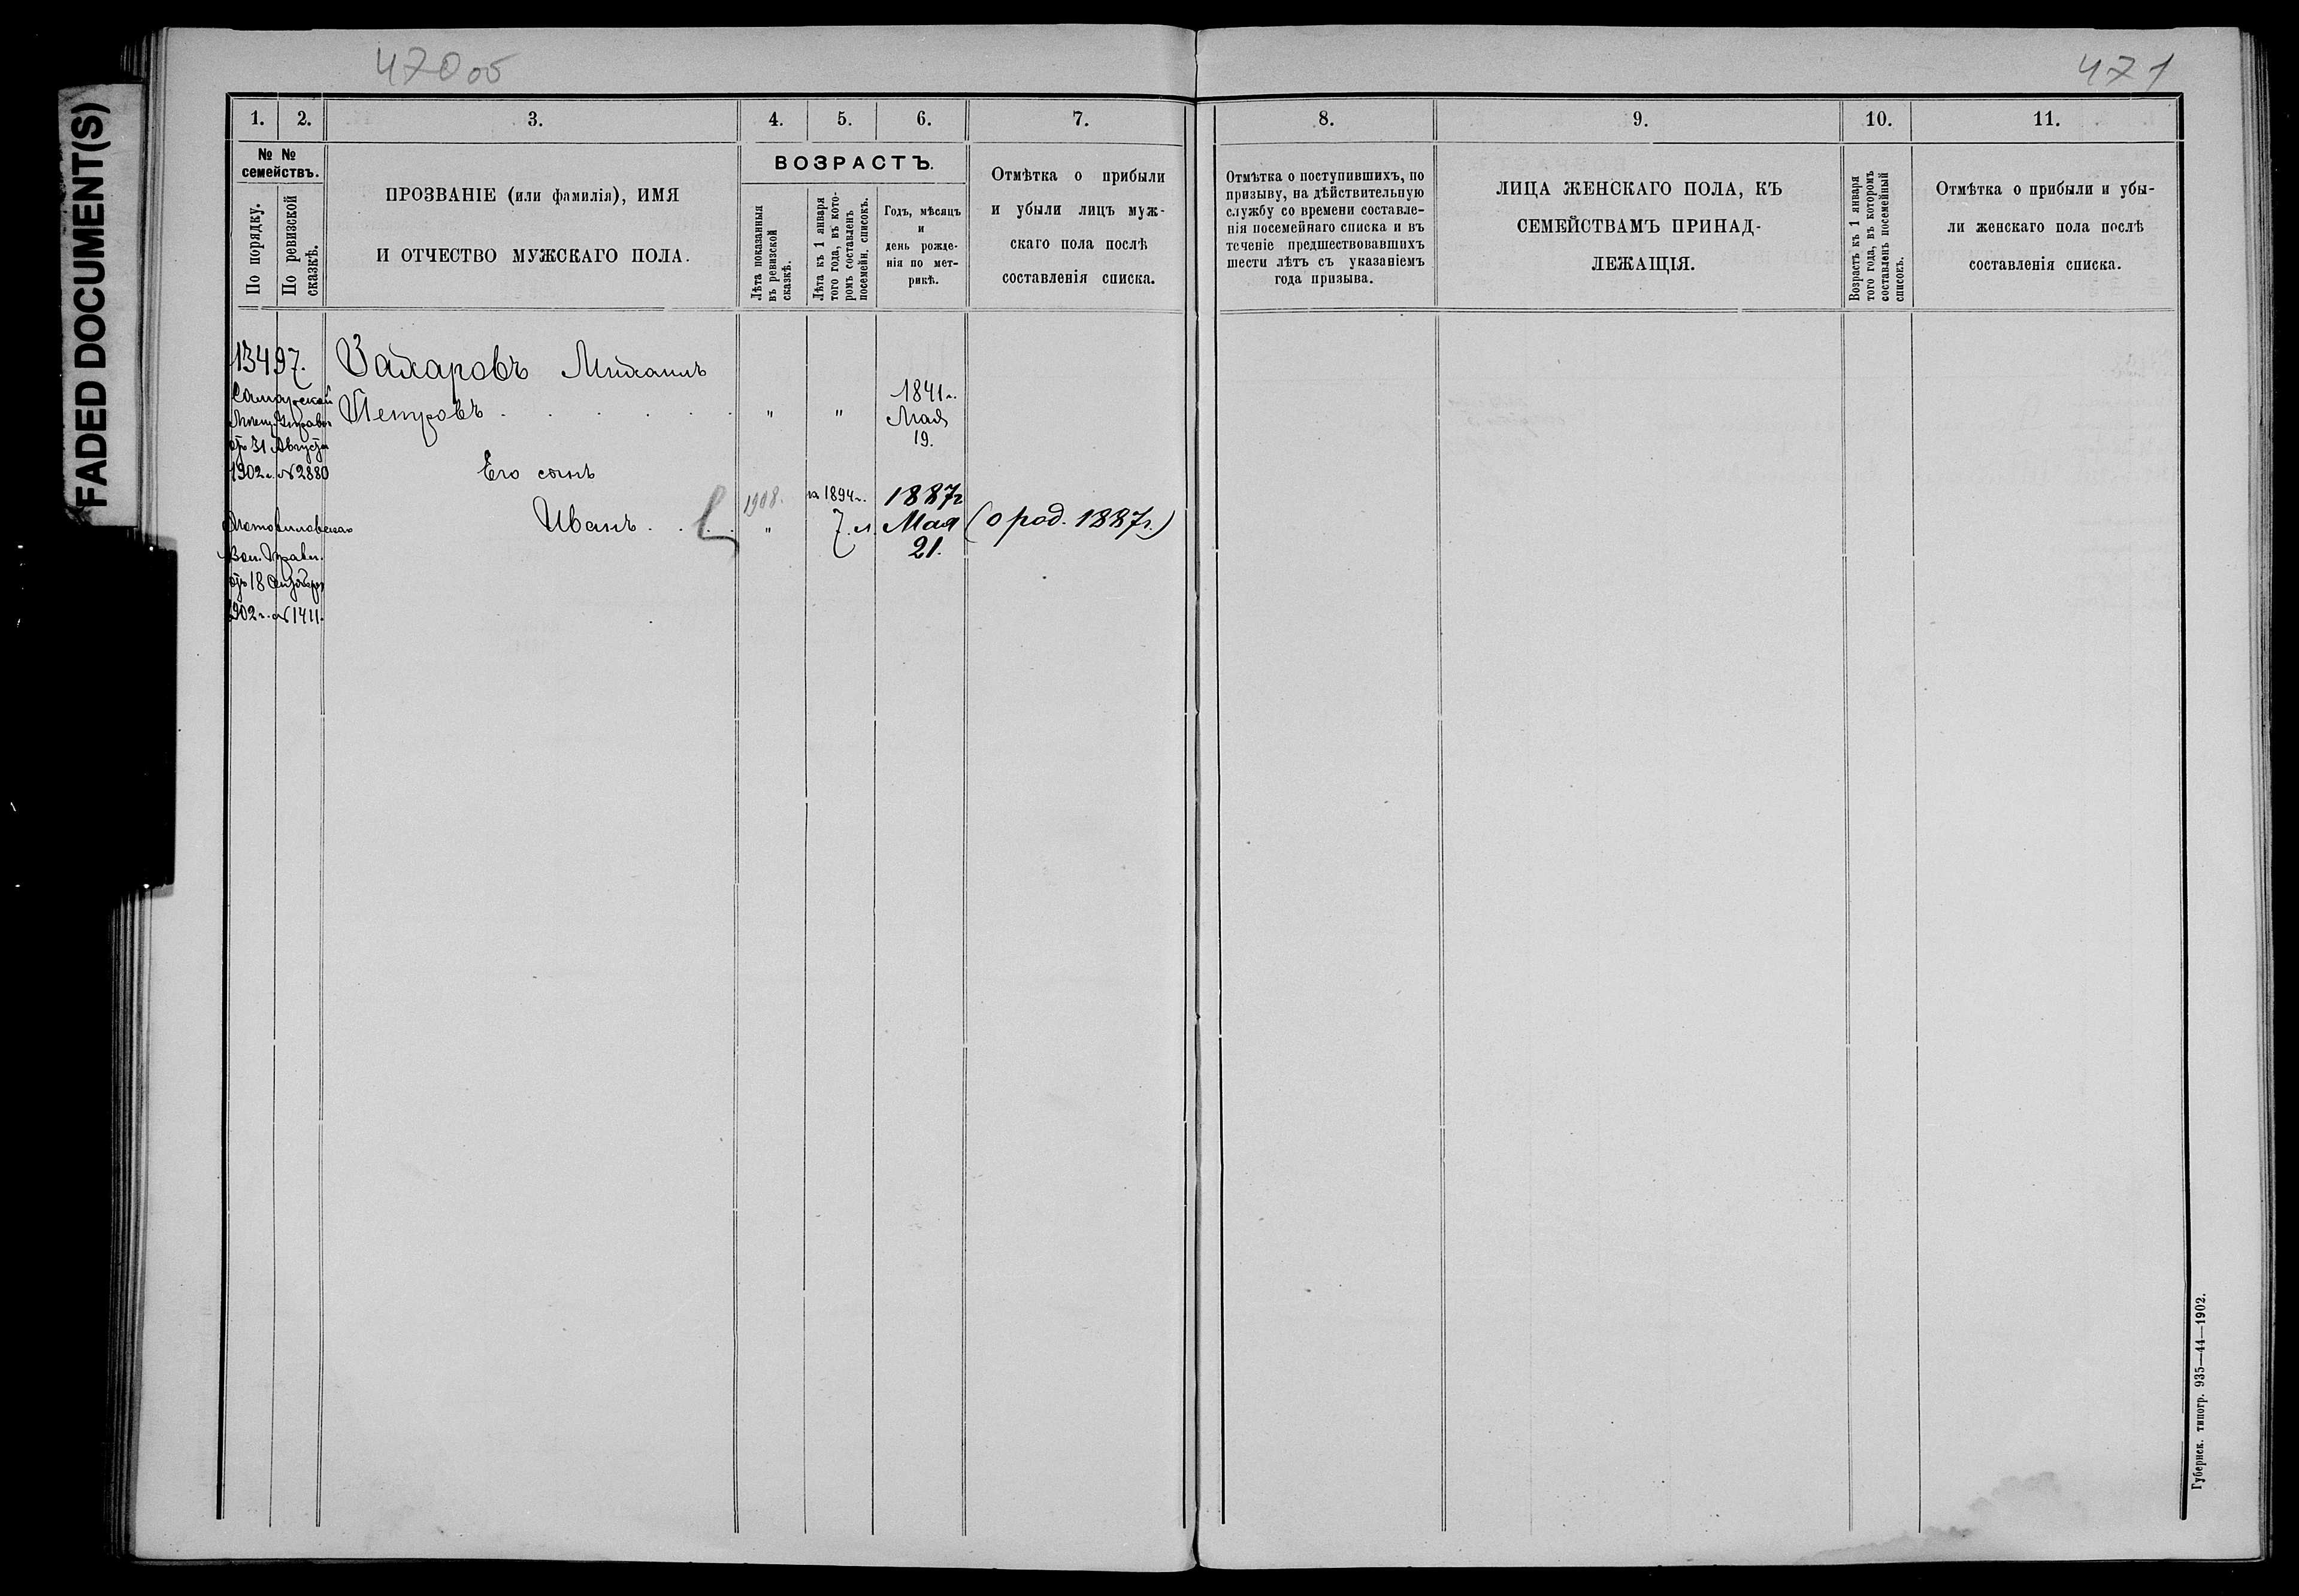 FADED DOCUMENT(S)
470об
471
1. 2. 3. 4. 5. 6. 7. 8. 9. 10. 11.
№ №
семействъ.
По порядку.
По ревизской
сказкѣ.
ПРОЗВАНІЕ (или фамилія), ИМЯ
И ОТЧЕСТВО МУЖСКАГО ПОЛА.
ВОЗРАСТЪ.
Лѣта показанныя
въ ревизской
сказкѣ.
Лѣта къ 1 января
того года, въ кото-
ромъ составленъ
посемейн. списокъ.
Годъ, мѣсяцъ
и
день рожде-
нія по мет-
рикѣ.
Отмѣтка о прибыли
и убыли лицъ муж-
скаго пола послѣ
составленія списка.
Отмѣтка о поступившихъ, по
призыву, на дѣйствительную
службу со времени составле-
нія посемейнаго списка и въ
теченіе предшествовавшихъ
шести лѣтъ съ указаніемъ
года призыва.
ЛИЦА ЖЕНСКАГО ПОЛА, КЪ
СЕМЕЙСТВАМЪ ПРИНАД-
ЛЕЖАЩІЯ.
Возрастъ къ 1 января
того года, въ которомъ
составленъ посемейный
списокъ.
Отмѣтка о прибыли и убы-
ли женскаго пола послѣ
составленія списка.
13497.
Захаровъ Михаилъ
Петровъ . . . . . . " "
1841г.
Мая
19.
Самарской
Управы
отъ 31 Августа
1902г. №2880
Его сынъ
Иванъ . . .
1908.
"
на 1894г.
7. л.
1887г
Мая
21.
(о род. 1887г.)
Вол. Правл.
отъ 18
1902г. №1411.
Губернск. типогр. 935—44—1902.